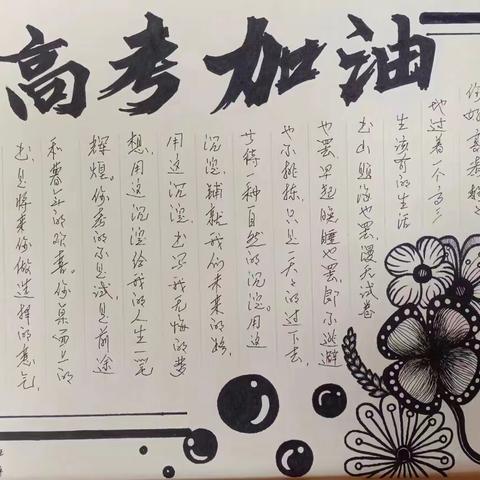 高考加油
地过着一个高三
生该有的生活
书山题海也罢,漫天试卷
也罢,早起晚睡也罢,即不逃避
也不挑拣,只是一天々的过下去,
等待一种自然的沉淀。用这
沉淀,铺就我们未来的路,
用这沉淀,书写我无悔的梦
想,用这沉淀给我的人生一笔
辉煌。你考的不是试,是前途
和暮年的欢喜。你桌面上的
书,是将来你做选择的底气。